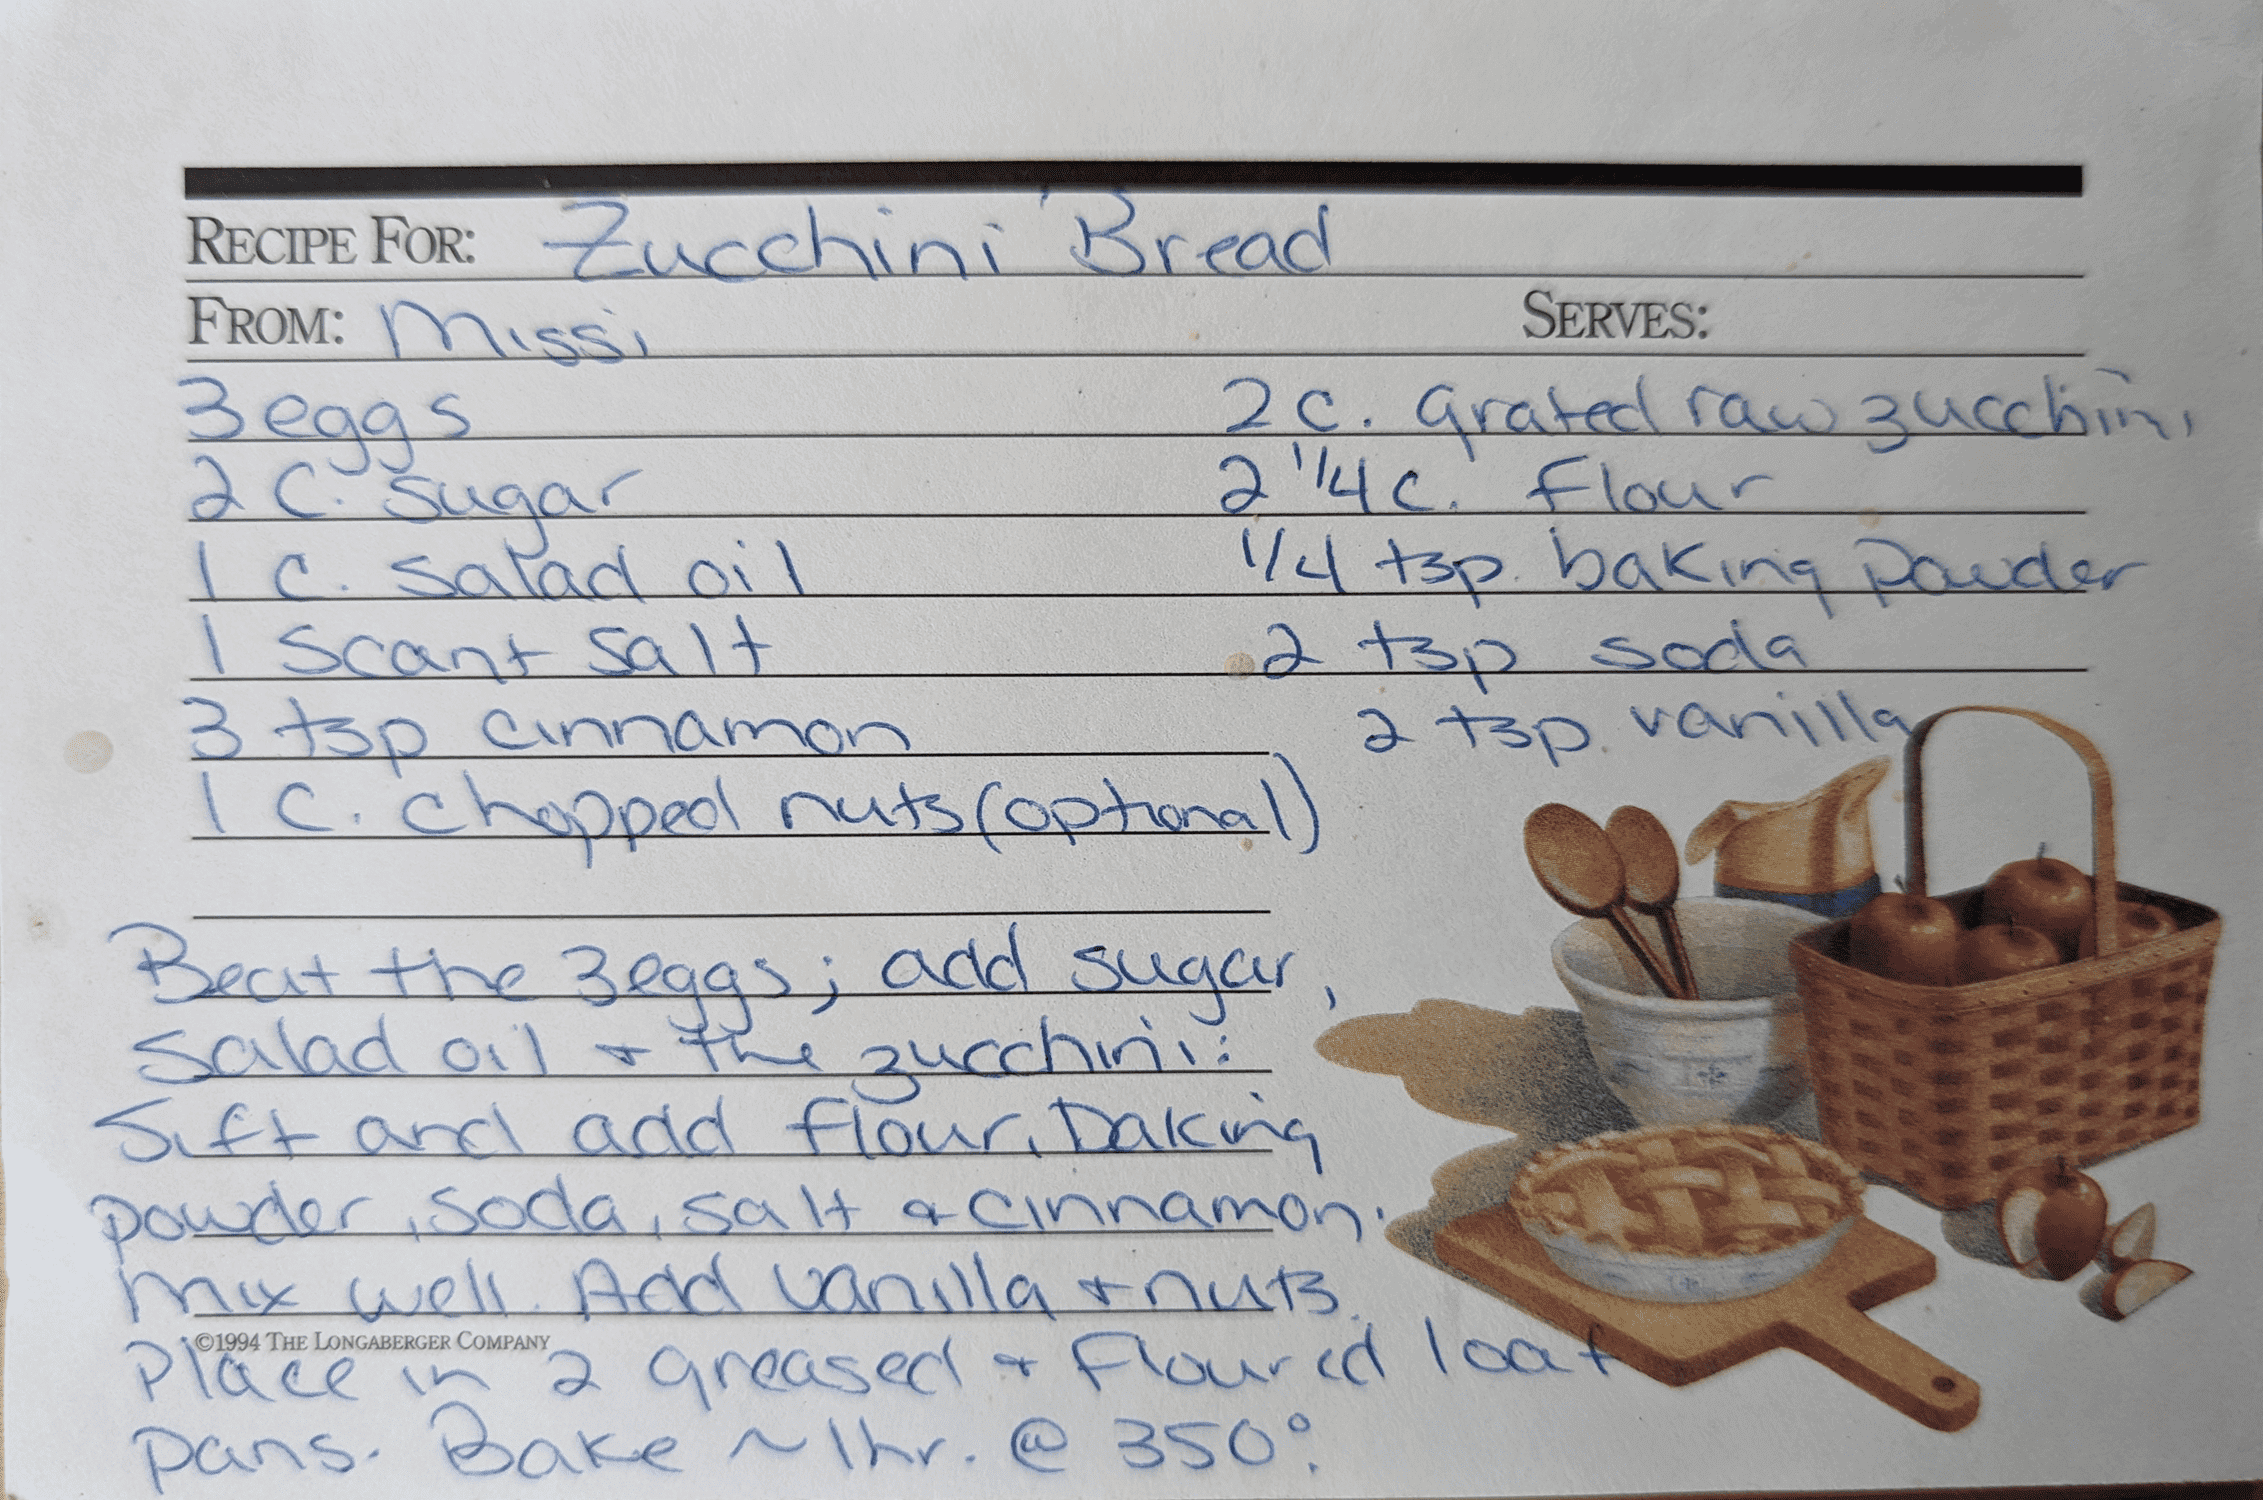 RECIPE FOR: Zucchini Bread
FROM: Missi SERVES:
3 eggs 2 c. grated raw zucchini
2 C. sugar 2 1/4 c. flour
1 C. salad oil 1/4 tsp. baking powder
1 scant salt 2 tsp soda
3 tsp cinnamon 2 tsp. vanilla
1 C. chopped nuts (optional)
Beat the 3 eggs; add sugar,
salad oil + the zucchini:
Sift and add flour, baking
powder, soda, salt + cinnamon.
Mix well. Add vanilla + nuts.
©1994 THE LONGABERGER COMPANY
Place in 2 greased + floured loaf
pans. Bake ~ 1 hr. @ 350°.